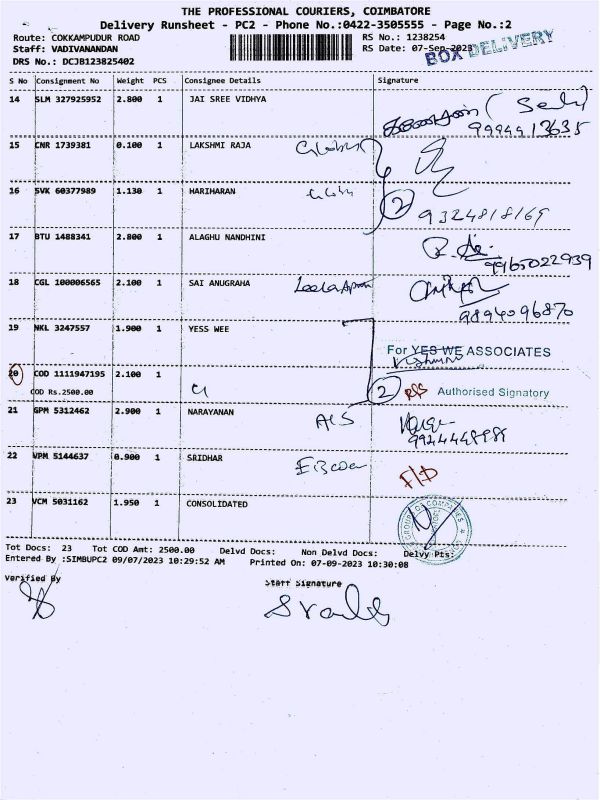 THE PROFESSIONAL COURIERS, COIMBATORE
Delivery Runsheet - PC2 - Phone No.:0422-3505555 - Page No.:2
Route: COKKAMPUDUR ROAD RS No.: 1238254
Staff: VADIVANANDAN RS Date: 07-Sep-2023
BOX DELIVERY
DRS No.: DCJB123825402
S No Consignment No Weight PCS Consignee Details Signature
14 SLM 327925952 2.800 1 JAI SREE VIDHYA
9994413635
15 CNR 1739381 0.100 1 LAKSHMI RAJA
16 SVK 60377989 1.130 1 HARIHARAN
2
9324818169
17 BTU 1488341 2.800 1 ALAGHU NANDHINI
9965022939
18 CGL 100006565 2.100 1 SAI ANUGRAHA
9894096870
19 NKL 3247557 1.900 1 YESS WEE
For YES WE ASSOCIATES
20 COD 1111947195 2.100 1
COD Rs.2500.00 2 Authorised Signatory
21 GPM 5312462 2.900 1 NARAYANAN
22 VPM 5144637 0.900 1 SRIDHAR
23 VCM 5031162 1.950 1 CONSOLIDATED
Tot Docs: 23 Tot COD Amt: 2500.00 Delvd Docs: Non Delvd Docs: Delvy Pts:
Entered By :SIMBUPC2 09/07/2023 10:29:52 AM Printed On: 07-09-2023 10:30:08
Verified By Staff Signature